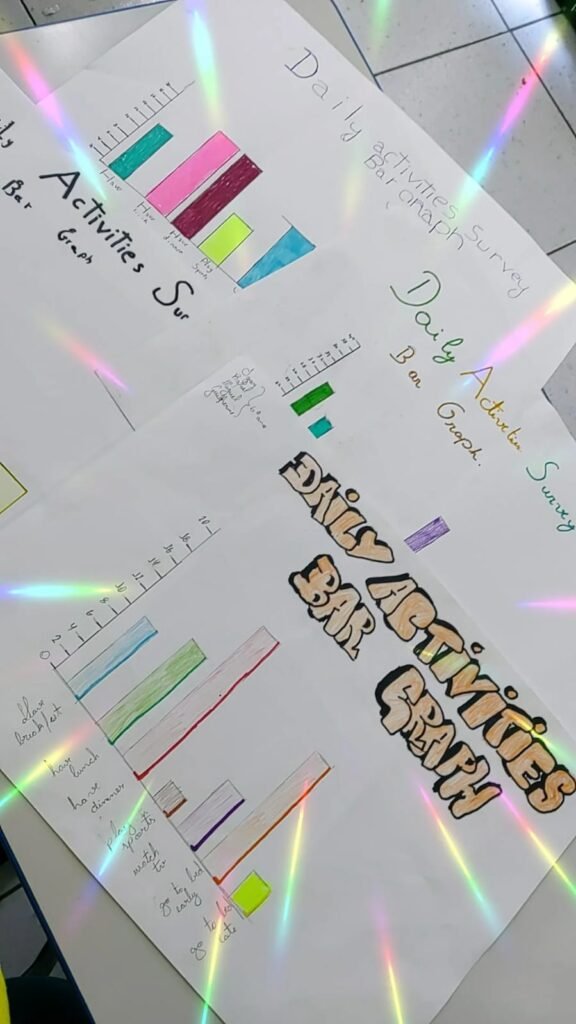 Daily activities Survey
Bar Graph
Have
Have
Have
dinner
Play
Sports
Bar
Activities Sur
Graph
Daily Activities Survey
Bar Graph.
DAiLY ACTiViTiES
BAR GRAPH
0 2 4 6 8 10 12 14 16 18 20
have
breakfast
have
lunch
have
dinner
play
sports
watch
tv
go to bed
early
go to bed
late